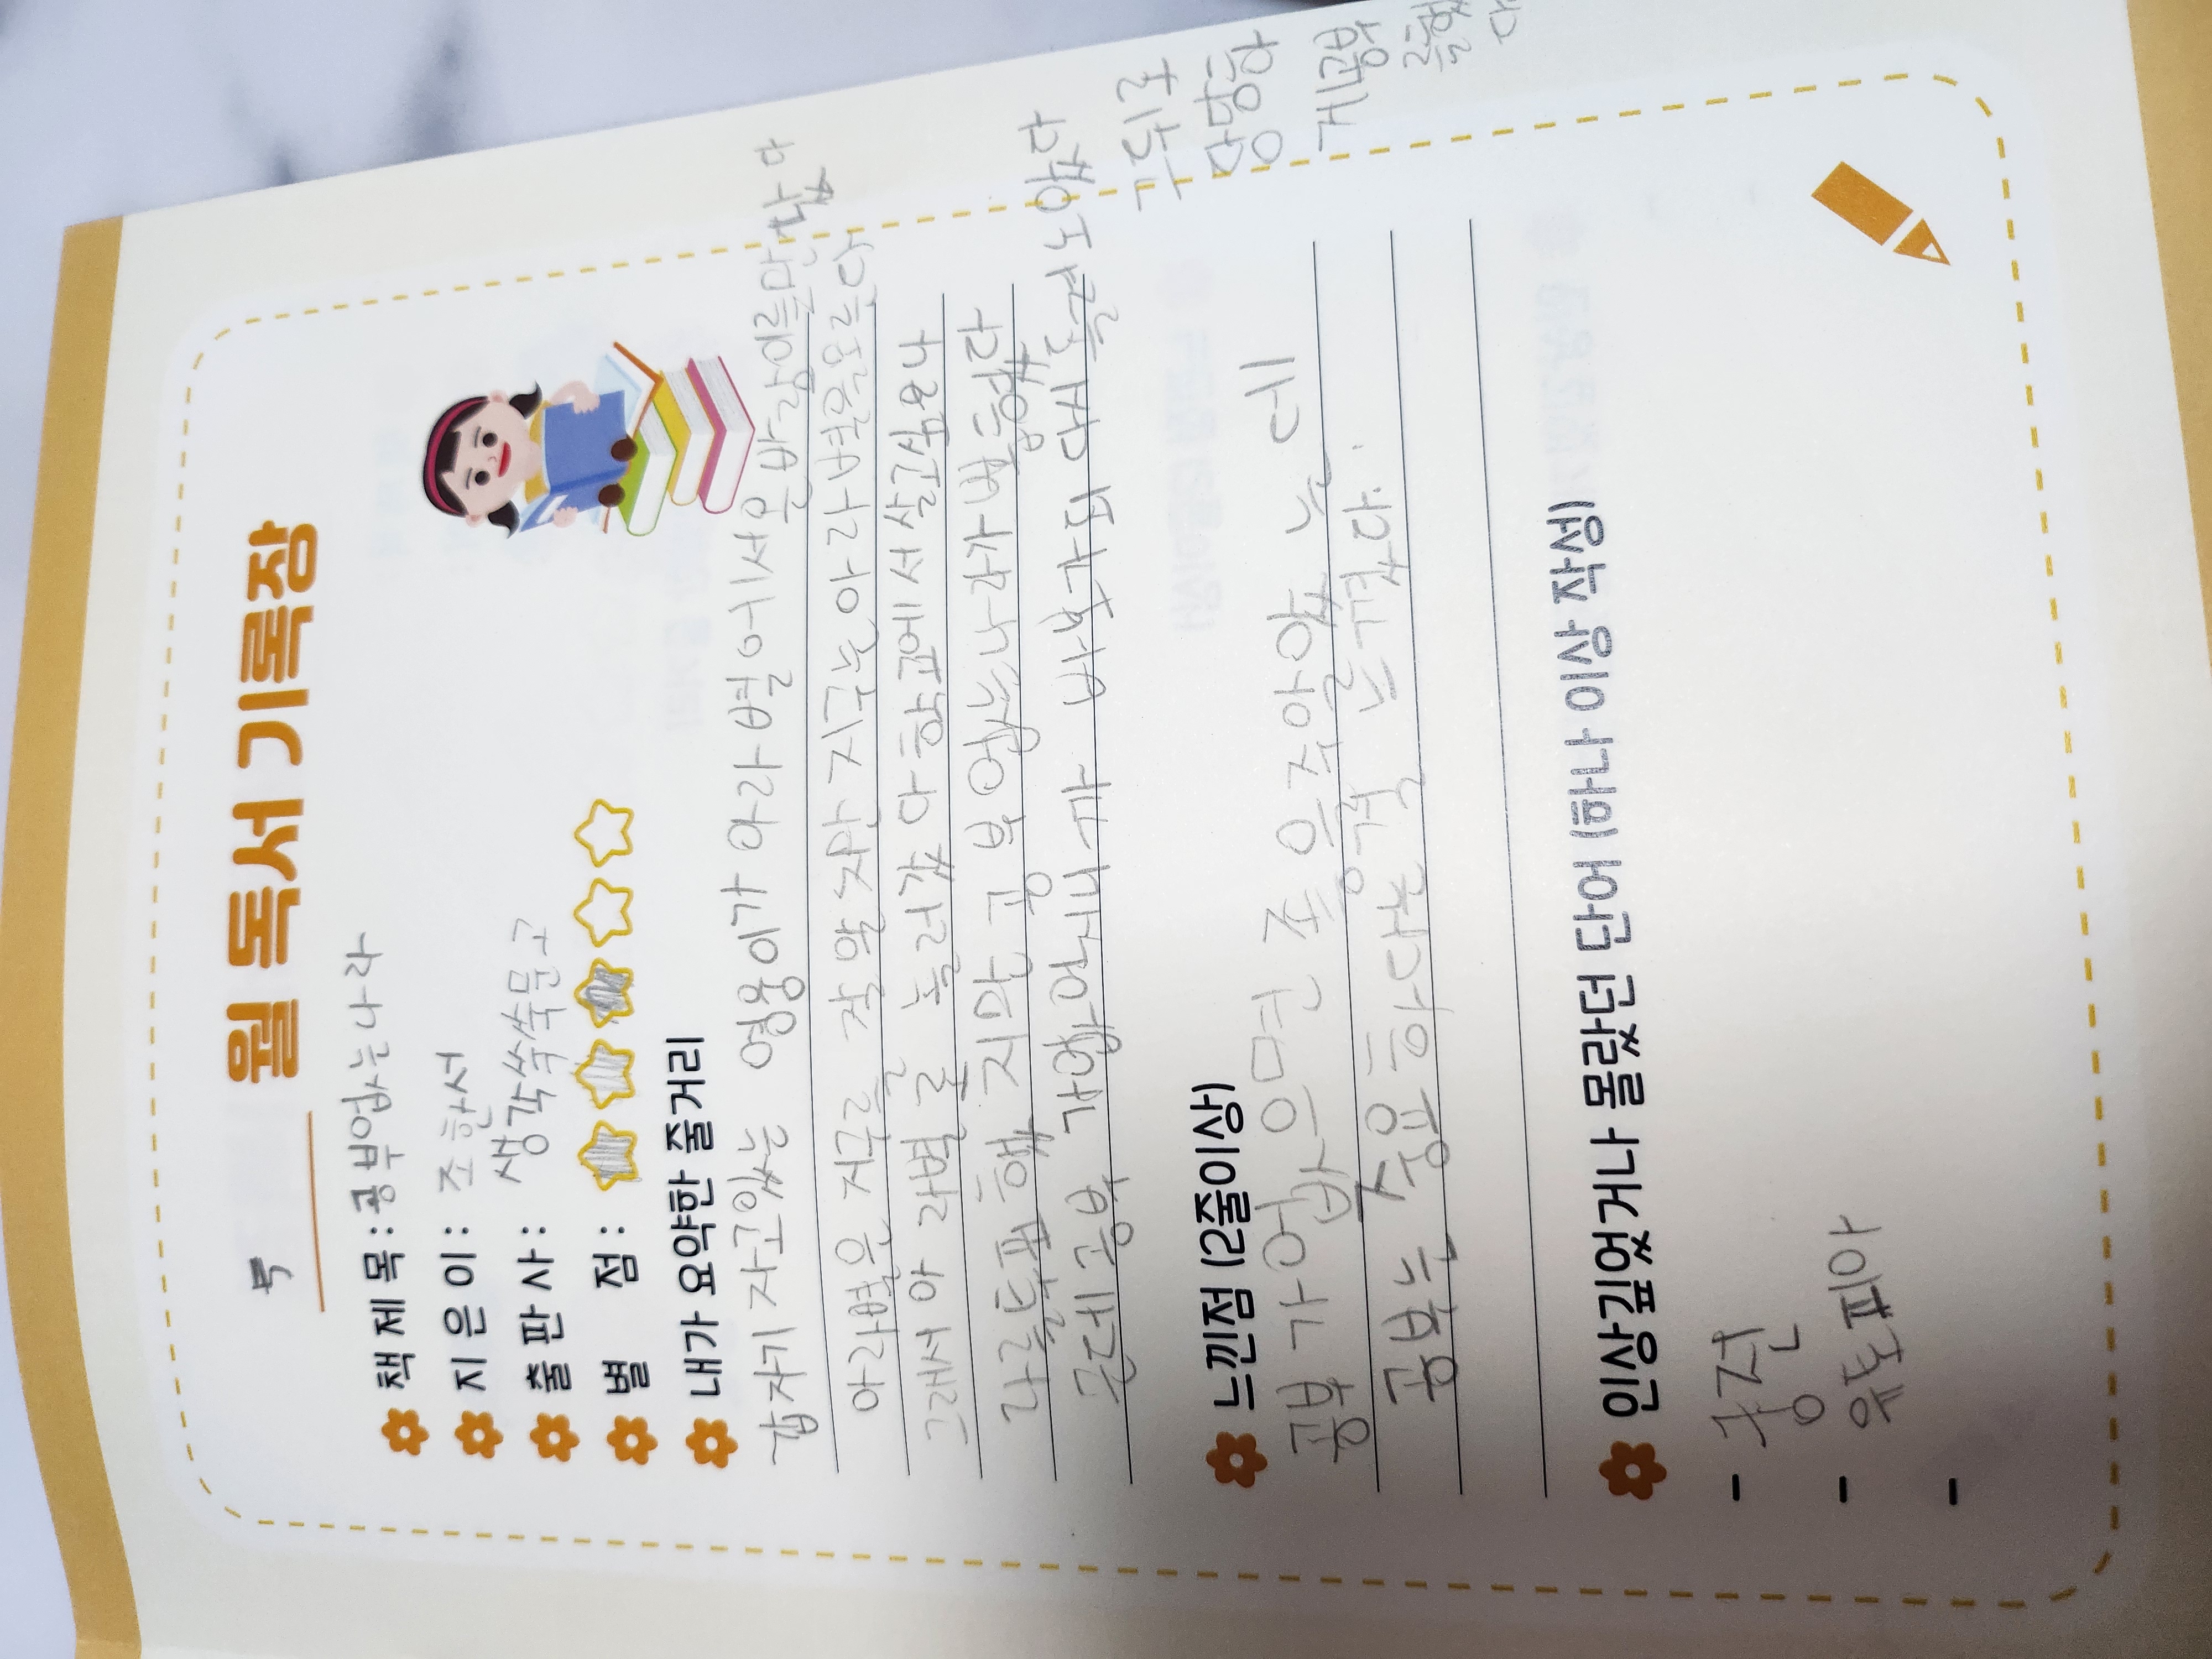 5 월 독서 기록장
책 제 목 : 공부없는나라
지 은 이 : 조한서
출 판 사 : 생각쑥쑥문고
별 점 :
내가 요약한 줄거리
갑자기 자고있는 영웅이가 아라별에서온바람이를만났다
아라별은 지구를 잘알지만 지구는 아라별을모른다
그래서 아라별로 놀러갔다 학교에서살고싶은나
라를투표했지만 공부없는나라가뽑혔다
근데공부가없어지니까 바보가되 다시돌려노았다
그뒤로
당당하
게공부
를했
다
느낀점 (2줄이상)
공부가없으면 좋을주알았는데
공부는 중요하다는걸 느꼈다.
인상깊었거나 몰랐던 단어 (하나 이상 작성)
- 궁전
- 유토피아
-